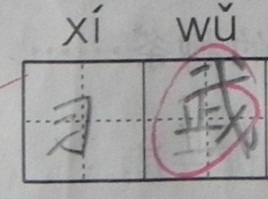 xí wǔ
习 武